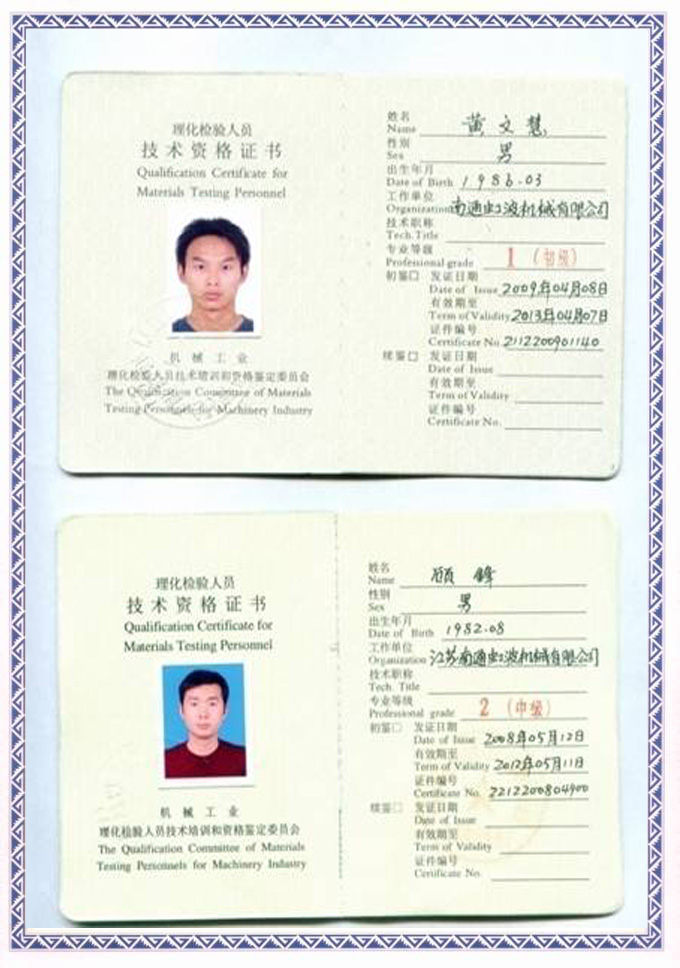 理化检验人员
技术资格证书
Qualification Certificate for
Materials Testing Personnel
机械工业
理化检验人员技术培训和资格鉴定委员会
The Qualification Committee of Materials
Testing Personnels for Machinery Industry
姓名
Name 黄文慧
性别
Sex 男
出生年月
Date of Birth 1986.03
工作单位
Organization 南通虹波机械有限公司
技术职称
Tech. Title
专业等级
Professional grade 1 (初级)
初鉴□ 发证日期
Date of Issue 2009年04月08日
有效期至
Term of Validity 2013年04月07日
证件编号
Certificate No. 2112200901140
续鉴□ 发证日期
Date of Issue
有效期至
Term of Validity
证件编号
Certificate No.
理化检验人员
技术资格证书
Qualification Certificate for
Materials Testing Personnel
机械工业
理化检验人员技术培训和资格鉴定委员会
The Qualification Committee of Materials
Testing Personnels for Machinery Industry
姓名
Name 顾锋
性别
Sex 男
出生年月
Date of Birth 1982.08
工作单位
Organization 江苏南通虹波机械有限公司
技术职称
Tech. Title
专业等级
Professional grade 2 (中级)
初鉴□ 发证日期
Date of Issue 2008年05月12日
有效期至
Term of Validity 2012年05月11日
证件编号
Certificate No. 2212200804900
续鉴□ 发证日期
Date of Issue
有效期至
Term of Validity
证件编号
Certificate No.